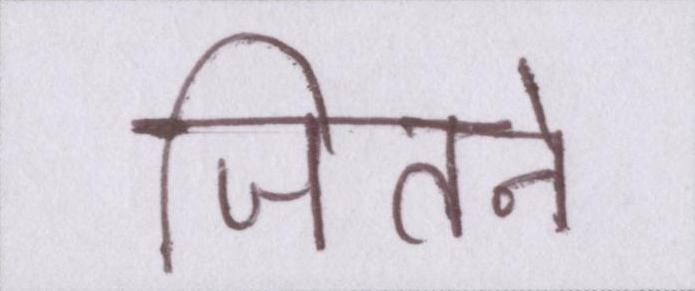 जितने